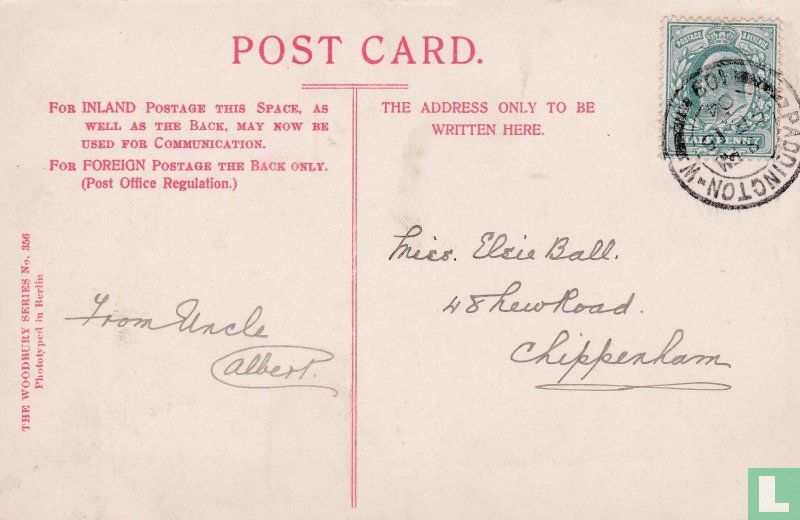 POST CARD.
FOR INLAND POSTAGE THIS SPACE, AS
WELL AS THE BACK, MAY NOW BE
USED FOR COMMUNICATION.
FOR FOREIGN POSTAGE THE BACK ONLY.
(Post Office Regulation.)
THE ADDRESS ONLY TO BE
WRITTEN HERE.
POSTAGE REVENUE
HALFPENNY
PADDINGTON-W
THE WOODBURY SERIES No. 356
Phototyped in Berlin
From Uncle
Albert.
Miss. Elsie Ball.
48 New Road.
Chippenham
L